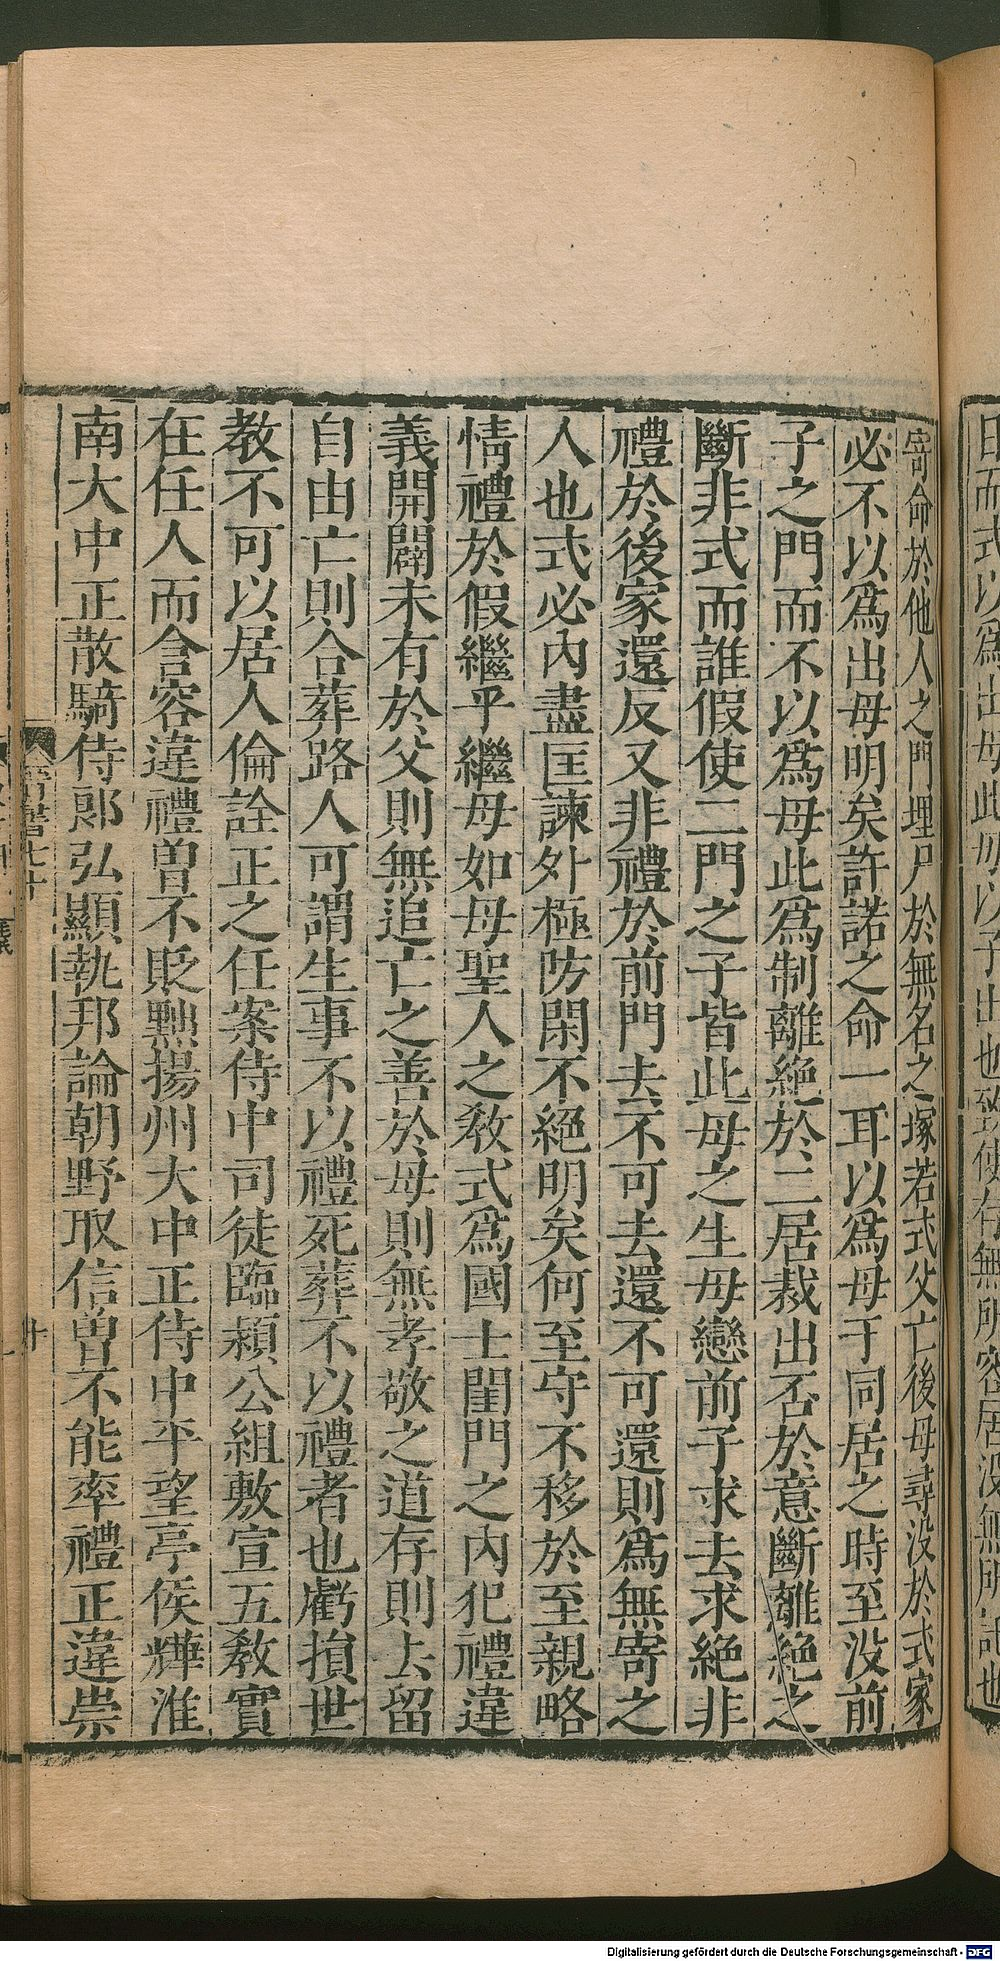 日而式以爲出母此母以子出也致使存無所容居没無所託也
寄命於他人之門埋尸於無名之塚若式父亡後母尋没於式家
必不以爲出母明矣許諾之命一耳以爲母于同居之時至没前
子之門而不以爲母此爲制離絶於二居裁出否於意斷離絶之
斷非式而誰假使二門之子皆此母之生母戀前子求去求絶非
禮於後家還反又非禮於前門去不可去還不可還則爲無寄之
人也式必内盡匡諫外極防閑不絶明矣何至守不移於至親略
情禮於假繼乎繼母如母聖人之教式爲國士閨門之内犯禮違
義開闢未有於父則無追亡之善於母則無孝敬之道存則去留
自由亡則合葬路人可謂生事不以禮死葬不以禮者也虧損世
教不可以居人倫詮正之任案侍中司徒臨潁公組敷宣五教實
在任人而含容違禮曽不貶黜揚州大中正侍中平望亭侯煒淮
南大中正散騎侍郎弘顯執邦論朝野取信曽不能率禮正違崇
晋書七十
十
Digitalisierung gefördert durch die Deutsche Forschungsgemeinschaft - DFG